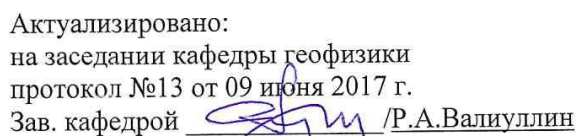 Актуализировано:
на заседании кафедры геофизики
протокол №13 от 09 июня 2017 г.
Зав. кафедрой /Р.А.Валиуллин